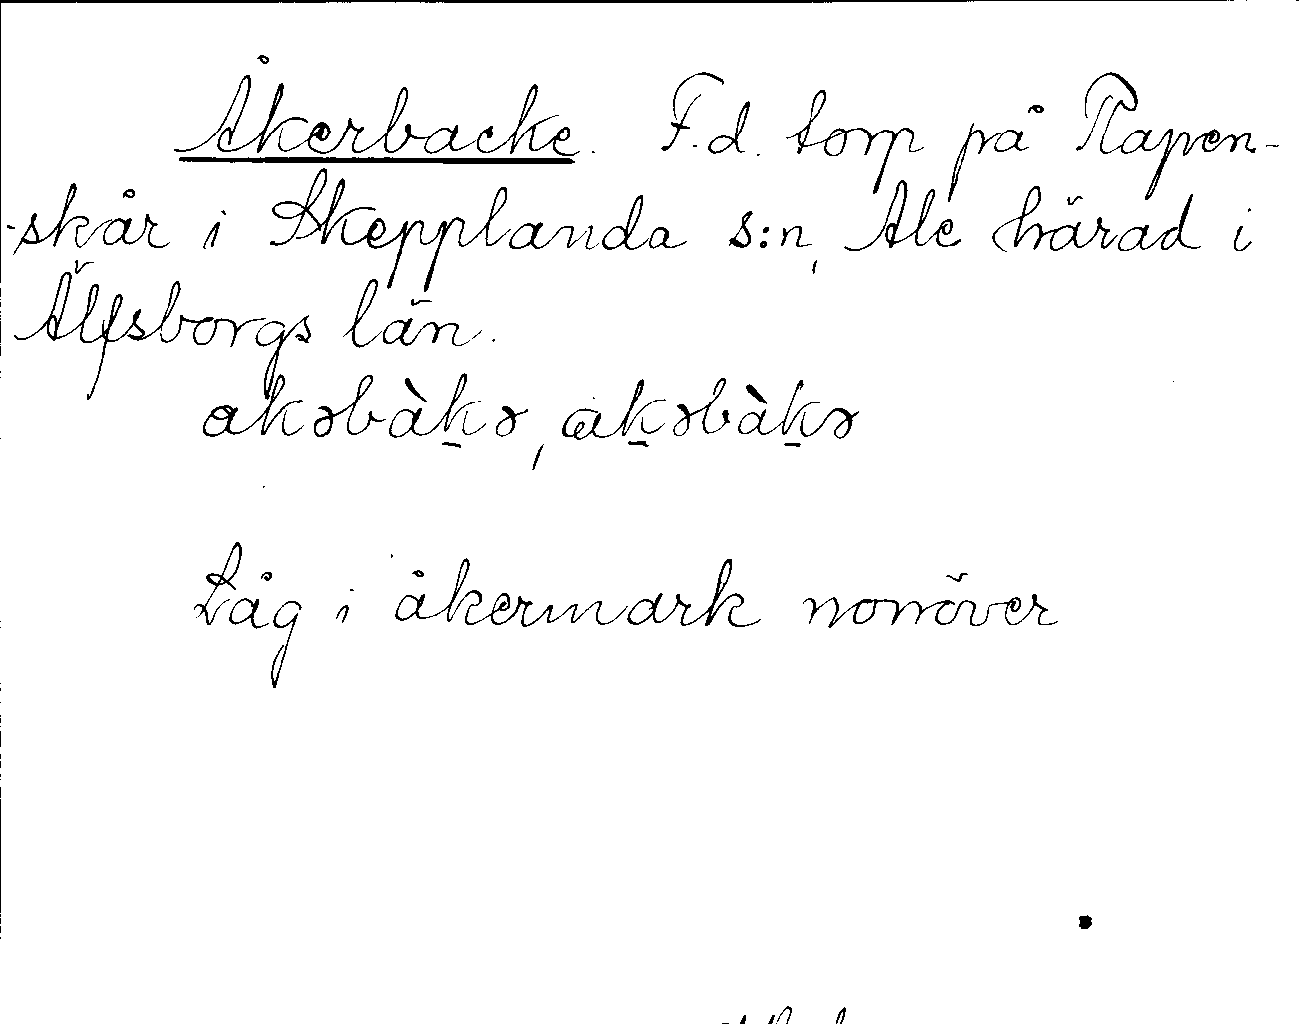 Åkerbacke. F.d. torp på Rapen-
-skår i Skepplanda s:n, Ale härad i
Älfsborgs län.
akərbàkə, akərbàkə
Låg i åkermark norröver